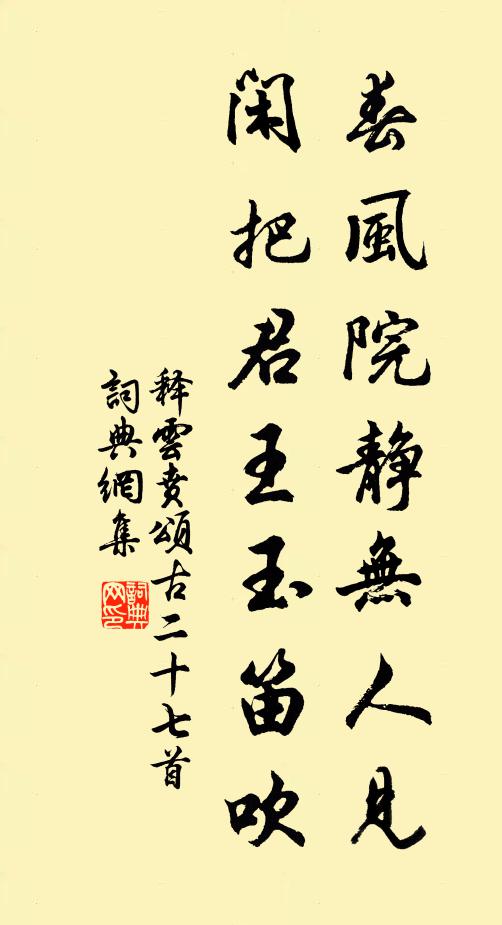 春風院静無人見
閑把君王玉笛吹
释雲賁頌古二十七首
詞典網集
詞典
网印